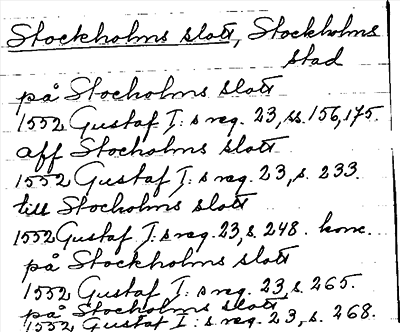 Stockholms slott, Stockholms
stad
på Stocholms slott
1552 Gustaf I:s reg. 23, ss. 156, 175.
aff Stocholms slott
1552 Gustaf I:s reg. 23, s. 233.
till Stocholms slott
1552 Gustaf I:s reg. 23, s. 248. konc.
på Stockholms slott
1552 Gustaf I:s reg. 23, s. 265.
på Stocholms slott
1552 Gustaf I:s reg. 23, s. 268.